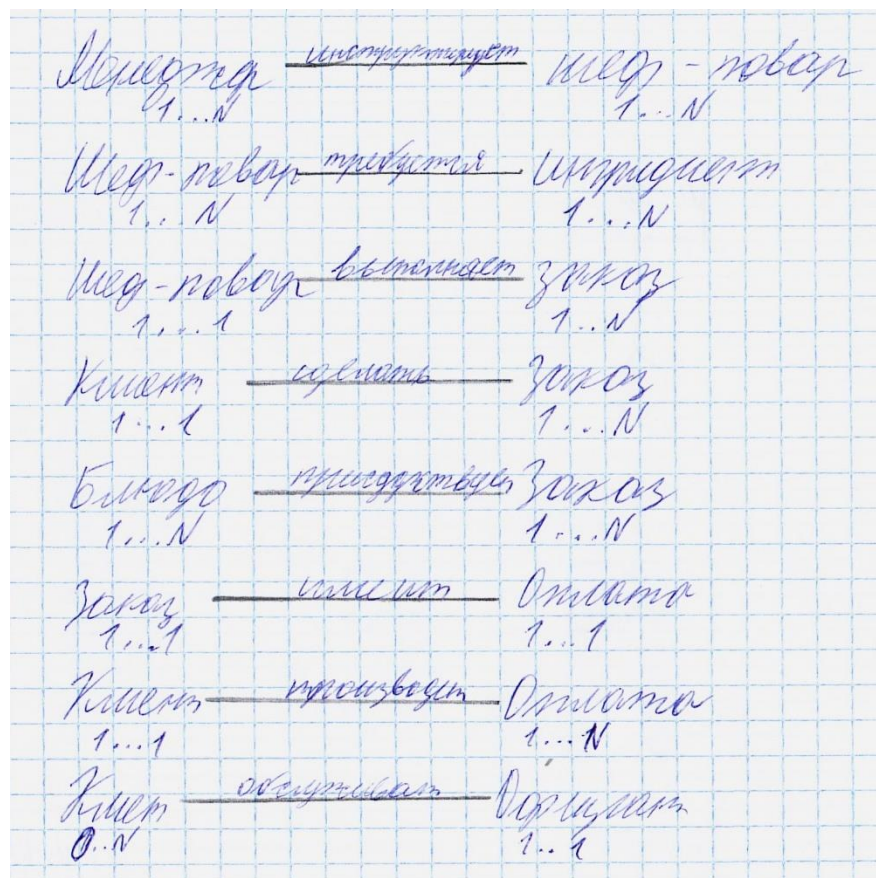 Менеджер инструктирует шеф-повар
1...N 1...N
Шеф-повар требуется Ингридиент
1...N 1...N
Шеф-повар выполняет заказ
1...1 1..N
Клиент сделать Заказ
1...1 1...N
Блюдо присудствует Заказ
1...N 1...N
Заказ имеит Оплата
1...1 1...1
Клиент производит Оплата
1...1 1...N
Клиет обслуживат Официант
0..N 1..1